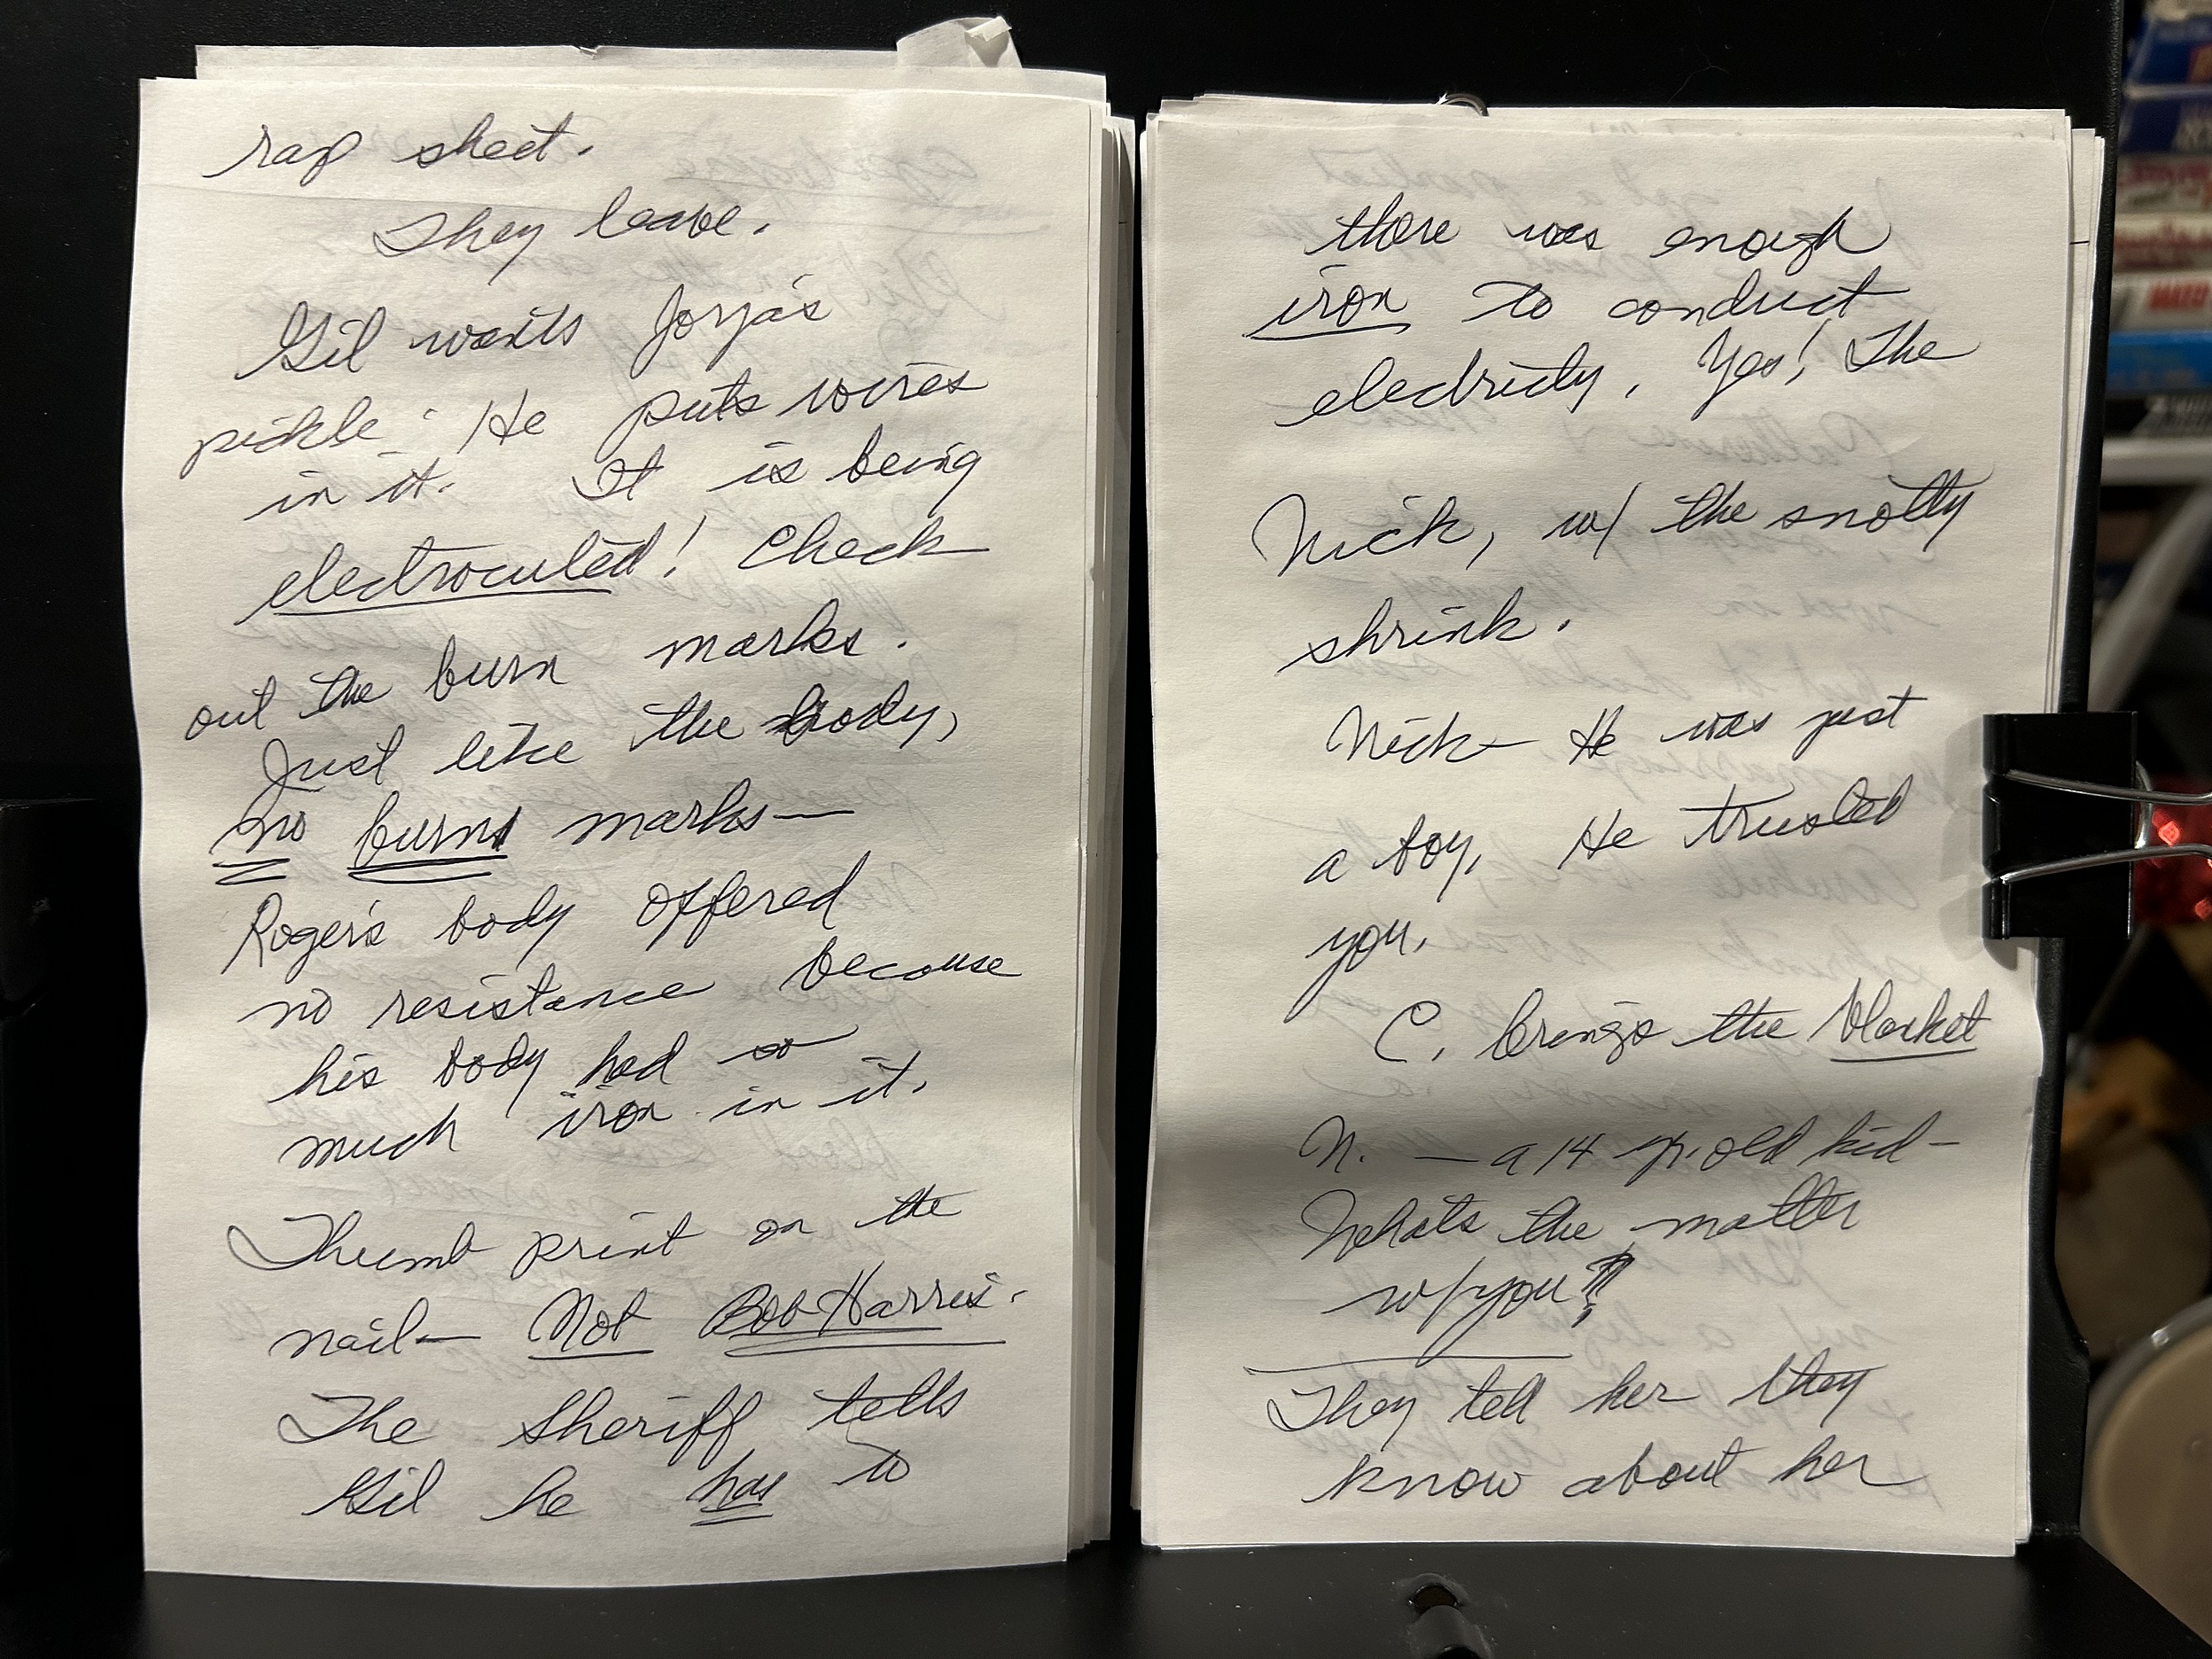 rap sheet.
They leave.
Gil wants Jorja's
pickle. He puts wires
in it. It is being
electrocuted! Check
out the burn marks.
Just like the body,
no burn marks—
Roger's body offered
no resistance because
his body had so
much iron in it.
Thumb print on the
nail— Not Bob Harris.
The Sheriff tells
Gil he has to
there was enough
iron to conduct
electricity. Yes! The
Nick, w/ the snotty
shrink.
Nick— He was just
a boy. He trusted
you.
C. brings the blanket
N. — a 14 yr. old kid—
What's the matter
w/you?
They tell her they
know about her